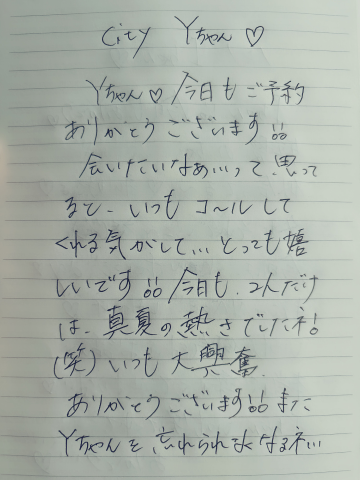 City Yちゃん♡
Yちゃん♡今日もご予約
ありがとうございます!!
会いたいなぁ…って思って
ると、いつもコールして
くれる気がして…とっても嬉
しいです!!今日も、2人だけ
は、真夏の熱さでしたネ!
(笑)いつも大興奮
ありがとうございます!!また
Yちゃんを忘れられなくなるネ…